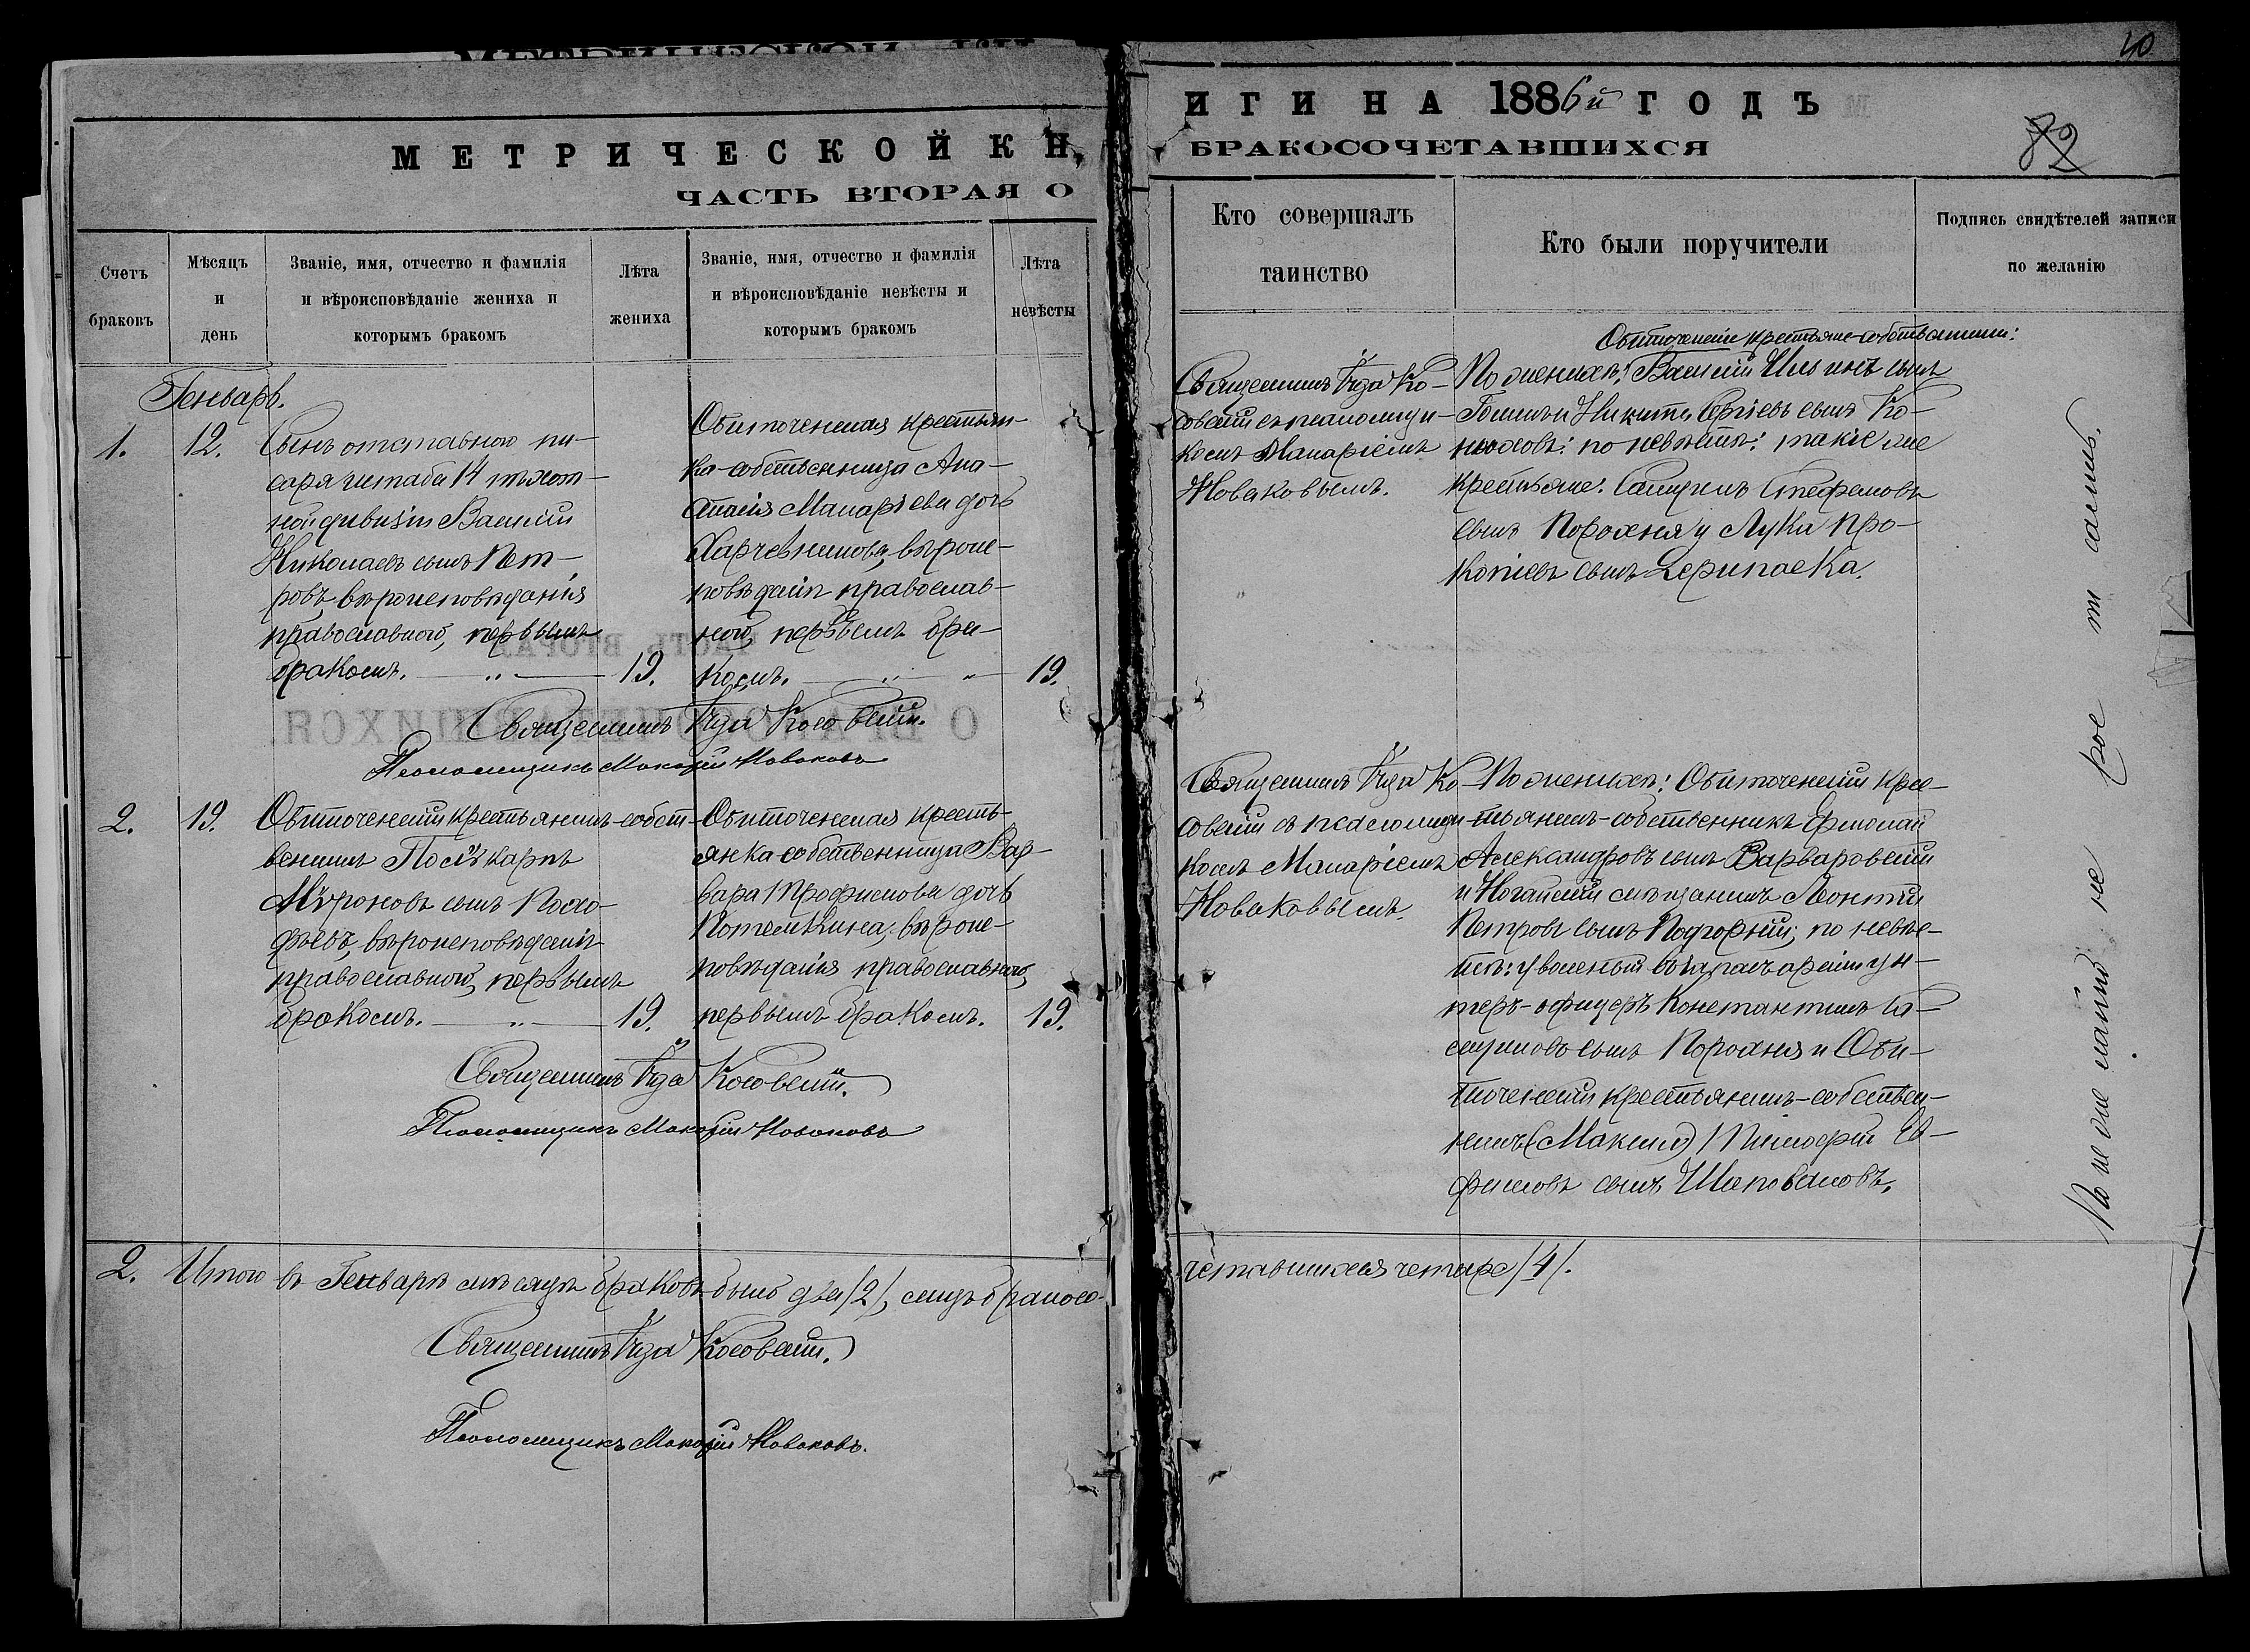 40
МЕТРИЧЕСКОЙ КН
ЧАСТЬ ВТОРАЯ О
ИГИ НА 1886й ГОДЪ
БРАКОСОЧЕТАВШИХСЯ
82
Счетъ
браковъ
Мѣсяцъ
и
день
Званіе, имя, отчество и фамилія
и вѣроисповѣданіе жениха и
которымъ бракомъ
Лѣта
жениха
Званіе, имя, отчество и фамилія
и вѣроисповѣданіе невѣсты и
которымъ бракомъ
Лѣта
невѣсты
Кто совершалъ
таинство
Кто были поручители
Подпись свидѣтелей записи
по желанію
Генварь.
1.
12.
Сынъ отставного пи-
саря штаба 14 пѣхот-
ной дивизіи Василій
Николаевъ сынъ Пет-
ровъ, вѣроисповѣданія
православного, первымъ
бракомъ.
19.
Обиточенская крестьян-
ка-собственница Ана-
стасія Макаріева дочь
Харчевникова, вѣроис-
повѣданія православ-
ного, первымъ бра-
комъ.
19.
Священникъ Іуда Ко-
совскій съ псаломщи-
комъ Макаріемъ
Новаковымъ.
Обиточенскіе крестьяне-собственники:
По женихѣ: Василій
сынъ
и Никита Сергіевъ сынъ Ко-
по невѣстѣ: такіе же
крестьяне. Самуилъ Стефановъ
сынъ Порохня и Лука Про-
копіевъ сынъ Дерипаска.
Священникъ Іуда Косовскій.
Псаломщикъ Макарій Новаковъ
2.
19.
Обиточенскій крестьянинъ-собст-
венникъ Полѵкарпъ
Мѵроновъ сынъ
вѣроисповѣданія
православного, первымъ
бракомъ.
19.
Обиточенская кресть-
янка собственница Вар-
вара Трофимова дочь
Потемкина, вѣроис-
повѣданія православного,
первымъ бракомъ.
19.
Священникъ Іуда Ко-
совскій съ псаломщи-
комъ Макаріемъ
Новаковымъ.
По женихѣ: Обиточенскій кре-
стьянинъ-собственникъ Ермолай
Александровъ сынъ Варваровскій
и Ногайскій мѣщанинъ Леонтій
Петровъ сынъ Подгорній; по невѣс-
тѣ: уволенный въ запасъ арміи ун-
теръ-офицеръ Константинъ Са-
муиловъ сынъ Порохня и Оби-
точенскій крестьянинъ-собствен-
никъ (Максим) Тимофей Ев-
фимовъ сынъ Шаповаловъ.
Священникъ Іуда Косовскій.
Псаломщикъ Макарій Новаковъ
2.
Итого въ Генварѣ мѣсяцѣ браковъ было два /2/, лицъ бракосо-
четавшихся четыре /4/.
Священникъ Іуда Косовскій.
Псаломщикъ Макарій Новаковъ.